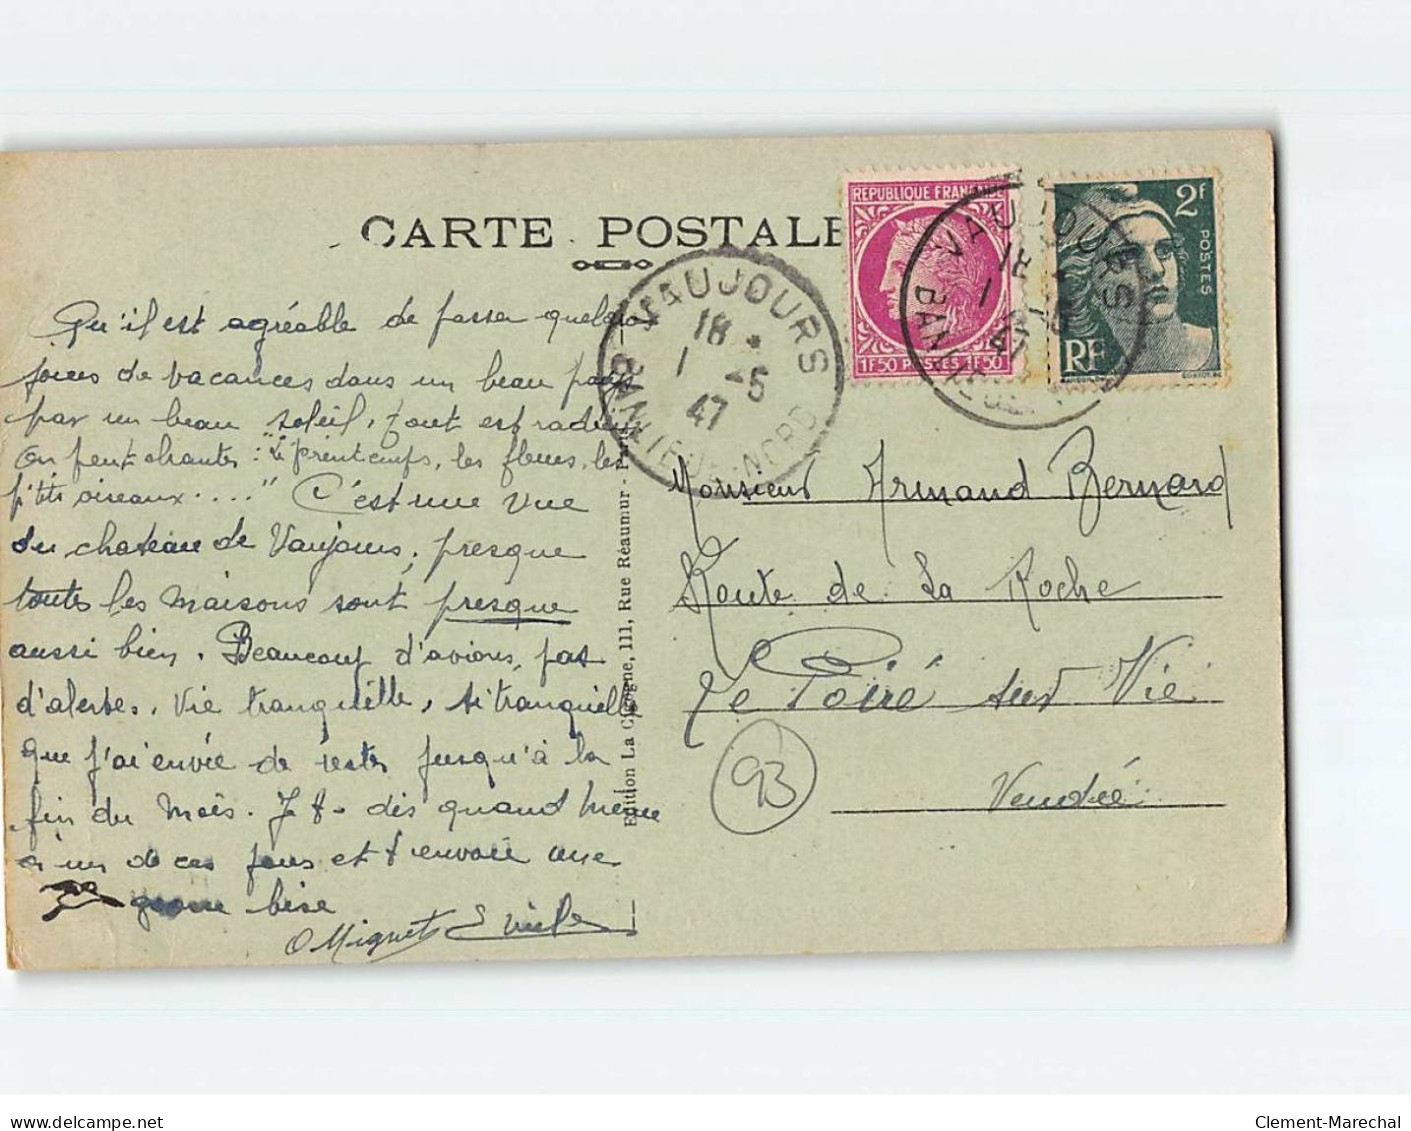 CARTE POSTALE
REPUBLIQUE FRANÇAISE
1F50 POSTES 1F50
2F
POSTES
RF
VAUJOURS
18
1 -5
47
BANLIEUE-NORD
VAUJOURS
18
1
47
Qu'il est agréable de passer quelques
jours de vacances dans un beau pays
par un beau soleil, tout est radieux
On peut chanter : "le printemps, les fleurs, les
p'tits oiseaux...." C'est une vue
du chateau de Vaujours, presque
toutes les maisons sont presque
aussi bien. Beaucoup d'avions, pas
d'alertes. Vie tranquille, si tranquille
que j'ai envie de rester jusqu'à la
fin du mois. dis quand même
à un de ces jours et t'envoie une
grosse bise
O Miguet Emile
Edition La Cigogne, 111, Rue Réaumur - Paris
Monsieur Armand Bernard
Route de La Roche
Le Poiré sur Vie
Vendée
93
Clement-Marechal